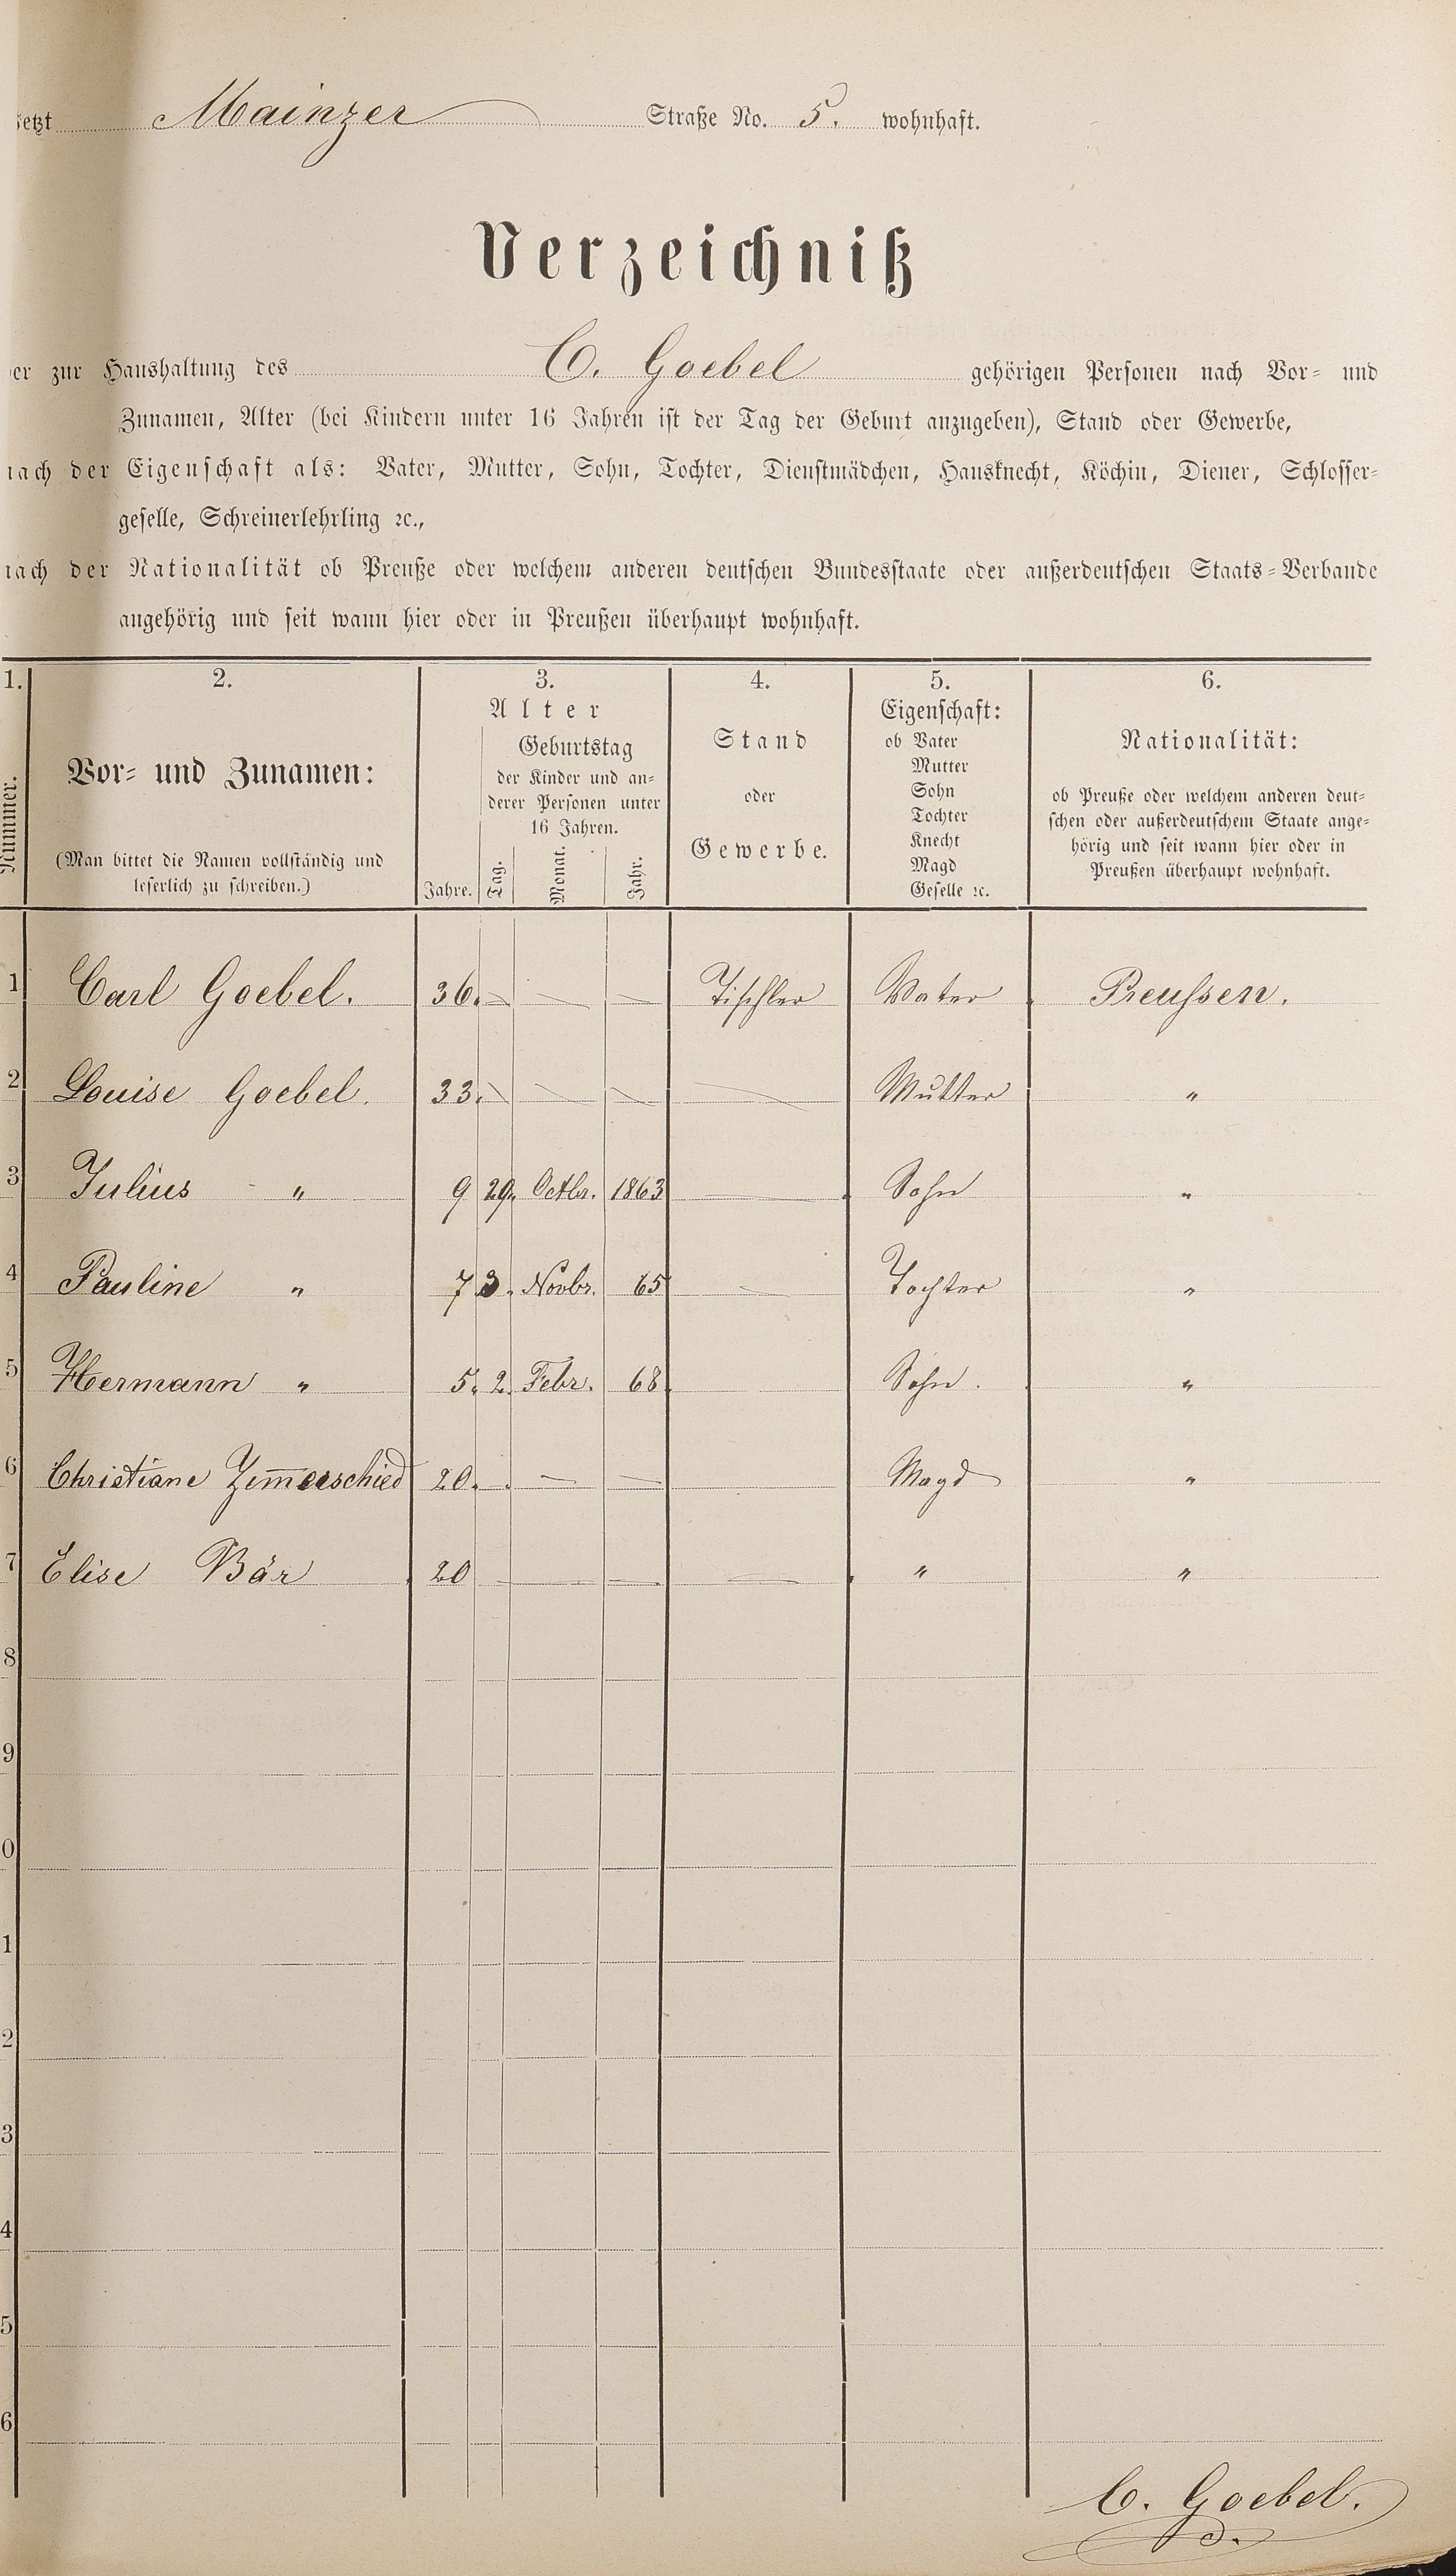 jetzt Mainzer Straße No. 5. wohnhaft.
Verzeichniß
der zur Haushaltung des C. Goebel gehörigen Personen nach Vor- und
Zunamen, Alter (bei Kindern unter 16 Jahren ist der Tag der Geburt anzugeben), Stand oder Gewerbe,
nach der Eigenschaft als: Vater, Mutter, Sohn, Tochter, Dienstmädchen, Hausknecht, Köchin, Diener, Schlosser-
geselle, Schreinerlehrling ꝛc.,
nach der Nationalität ob Preuße oder welchem anderen deutschen Bundesstaate oder außerdeutschen Staats-Verbande
angehörig und seit wann hier oder in Preußen überhaupt wohnhaft.
1. 2. 3. 4. 5. 6.
Nummer.
Vor- und Zunamen:
(Man bittet die Namen vollständig und
leserlich zu schreiben.)
Alter
Jahre.
Geburtstag
der Kinder und an-
derer Personen unter
16 Jahren.
Tag. Monat. Jahr.
Stand
oder
Gewerbe.
Eigenschaft:
ob Vater
Mutter
Sohn
Tochter
Knecht
Magd
Geselle ꝛc.
Nationalität:
ob Preuße oder welchem anderen deut-
schen oder außerdeutschem Staate ange-
hörig und seit wann hier oder in
Preußen überhaupt wohnhaft.
1 Carl Goebel. 36. — — — Tischler Vater Preussen.
2 Louise Goebel. 33. — — — — Mutter "
3 Julius " 9 29. Octbr. 1863 — Sohn "
4 Pauline " 7 3. Novbr. 65 — Tochter "
5 Hermann " 5. 2. Febr. 68 Sohn. "
6 Christiane Zim̄erschied 20. — — Magd "
7 Elise Bär 20 — — — " "
8
9
0
1
2
3
4
5
6
C. Goebel.